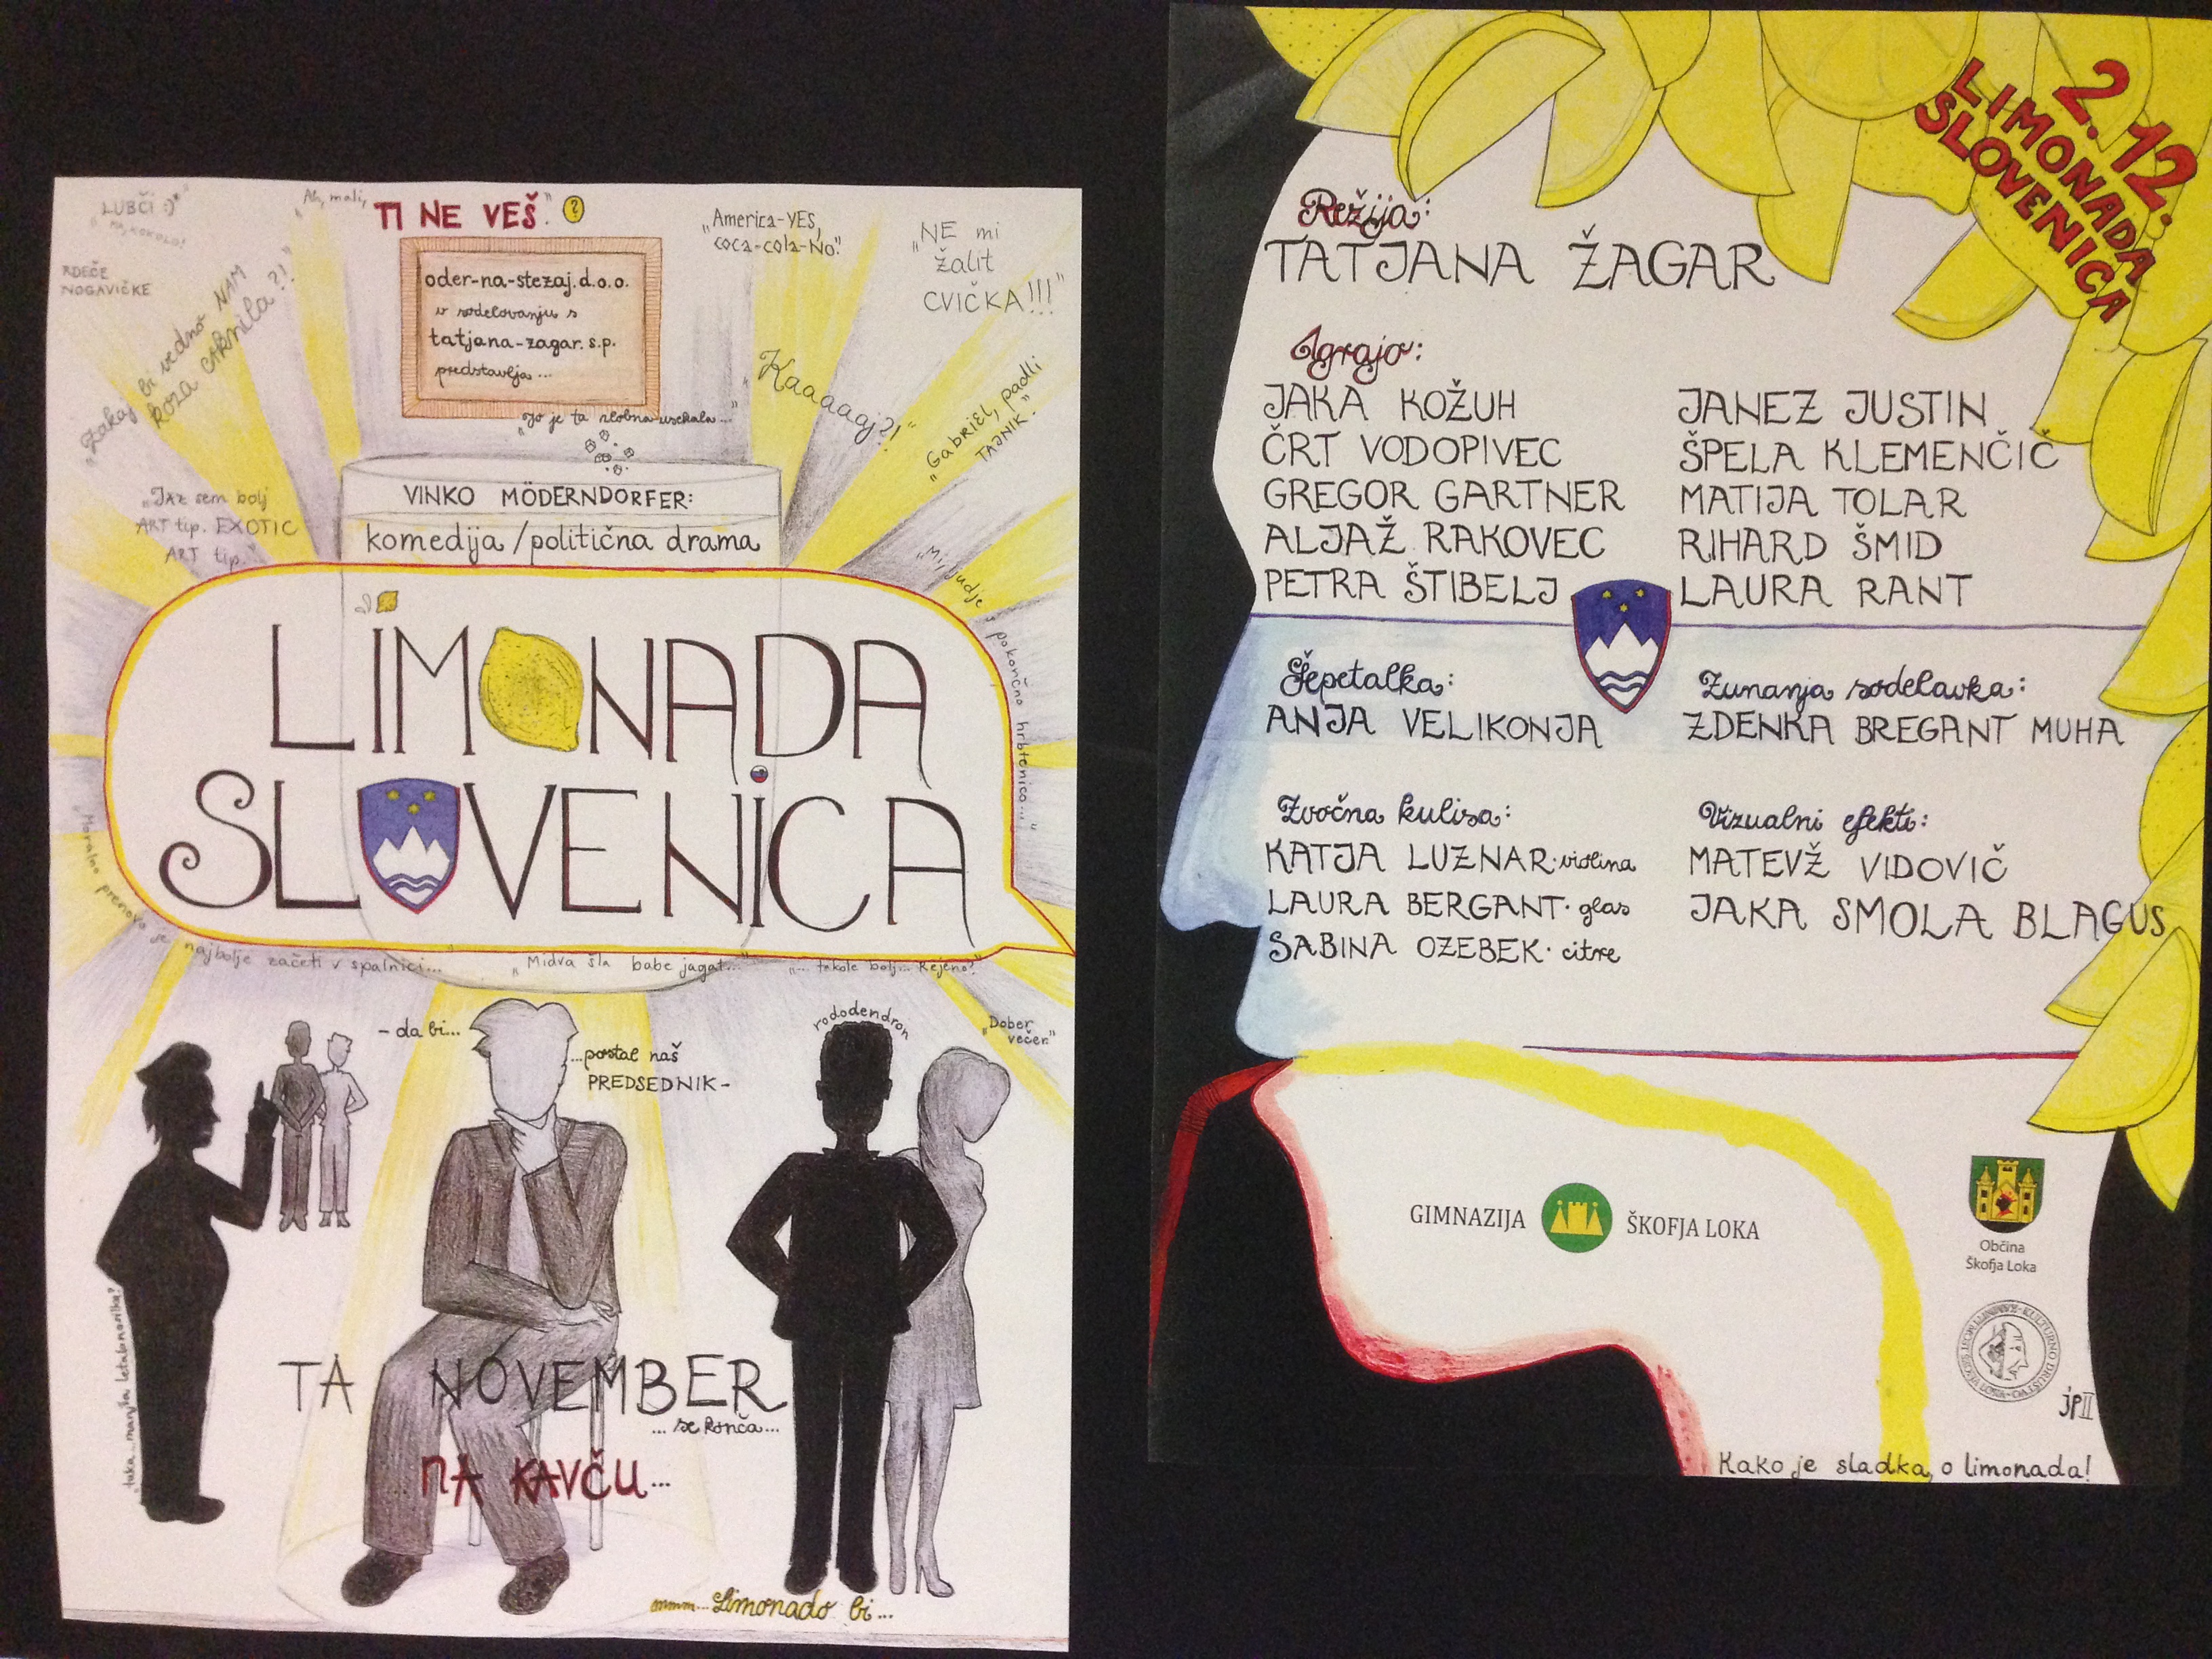 LUBČI :)*
"Ah, mali,
TI NE VEŠ." ?
"America-YES,
coca-cola-NO."
"NE mi
žalit
CVIČKA!!!"
RDEČE
NOGAVIČKE
"Zakaj bi vedno NAM
koza crknila?!"
oder-na-stezaj.d.o.o.
v sodelovanju s
tatjana-zagar.s.p.
predstavlja...
"Jo je ta zlobna usekala..."
"Kaaaaaj?!"
"Gabriel, padli
TAJNIK."
"Jaz sem bolj
ART tip. EXOTIC
ART tip."
VINKO MÖDERNDORFER:
komedija/politična drama
"Mi, ljudje s pokončno hrbtenico..."
LIMONADA
SLOVENICA
Moralno prenovo je najbolje začeti v spalnici...
"Midva šla babe jagat..."
"... tekole bolj... Rejeno?"
- da bi...
...postal naš
PREDSEDNIK-
rododendron
"Dober
večer."
TA NOVEMBER
...se konča...
NA KAVČU...
mmm... Limonado bi...
2. 12.
LIMONADA
SLOVENICA
Režija:
TATJANA ŽAGAR
Igrajo:
JAKA KOŽUH
ČRT VODOPIVEC
GREGOR GARTNER
ALJAŽ RAKOVEC
PETRA ŠTIBELJ
JANEZ JUSTIN
ŠPELA KLEMENČIČ
MATIJA TOLAR
RIHARD ŠMID
LAURA RANT
Šepetalka:
ANJA VELIKONJA
Zunanja sodelavka:
ZDENKA BREGANT MUHA
Zvočna kulisa:
KATJA LUZNAR·violina
LAURA BERGANT·glas
SABINA OZEBEK·citre
Vizualni efekti:
MATEVŽ VIDOVIČ
JAKA SMOLA BLAGUS
GIMNAZIJA ŠKOFJA LOKA
Občina
Škofja Loka
jPII
Kako je sladka, o limonada!